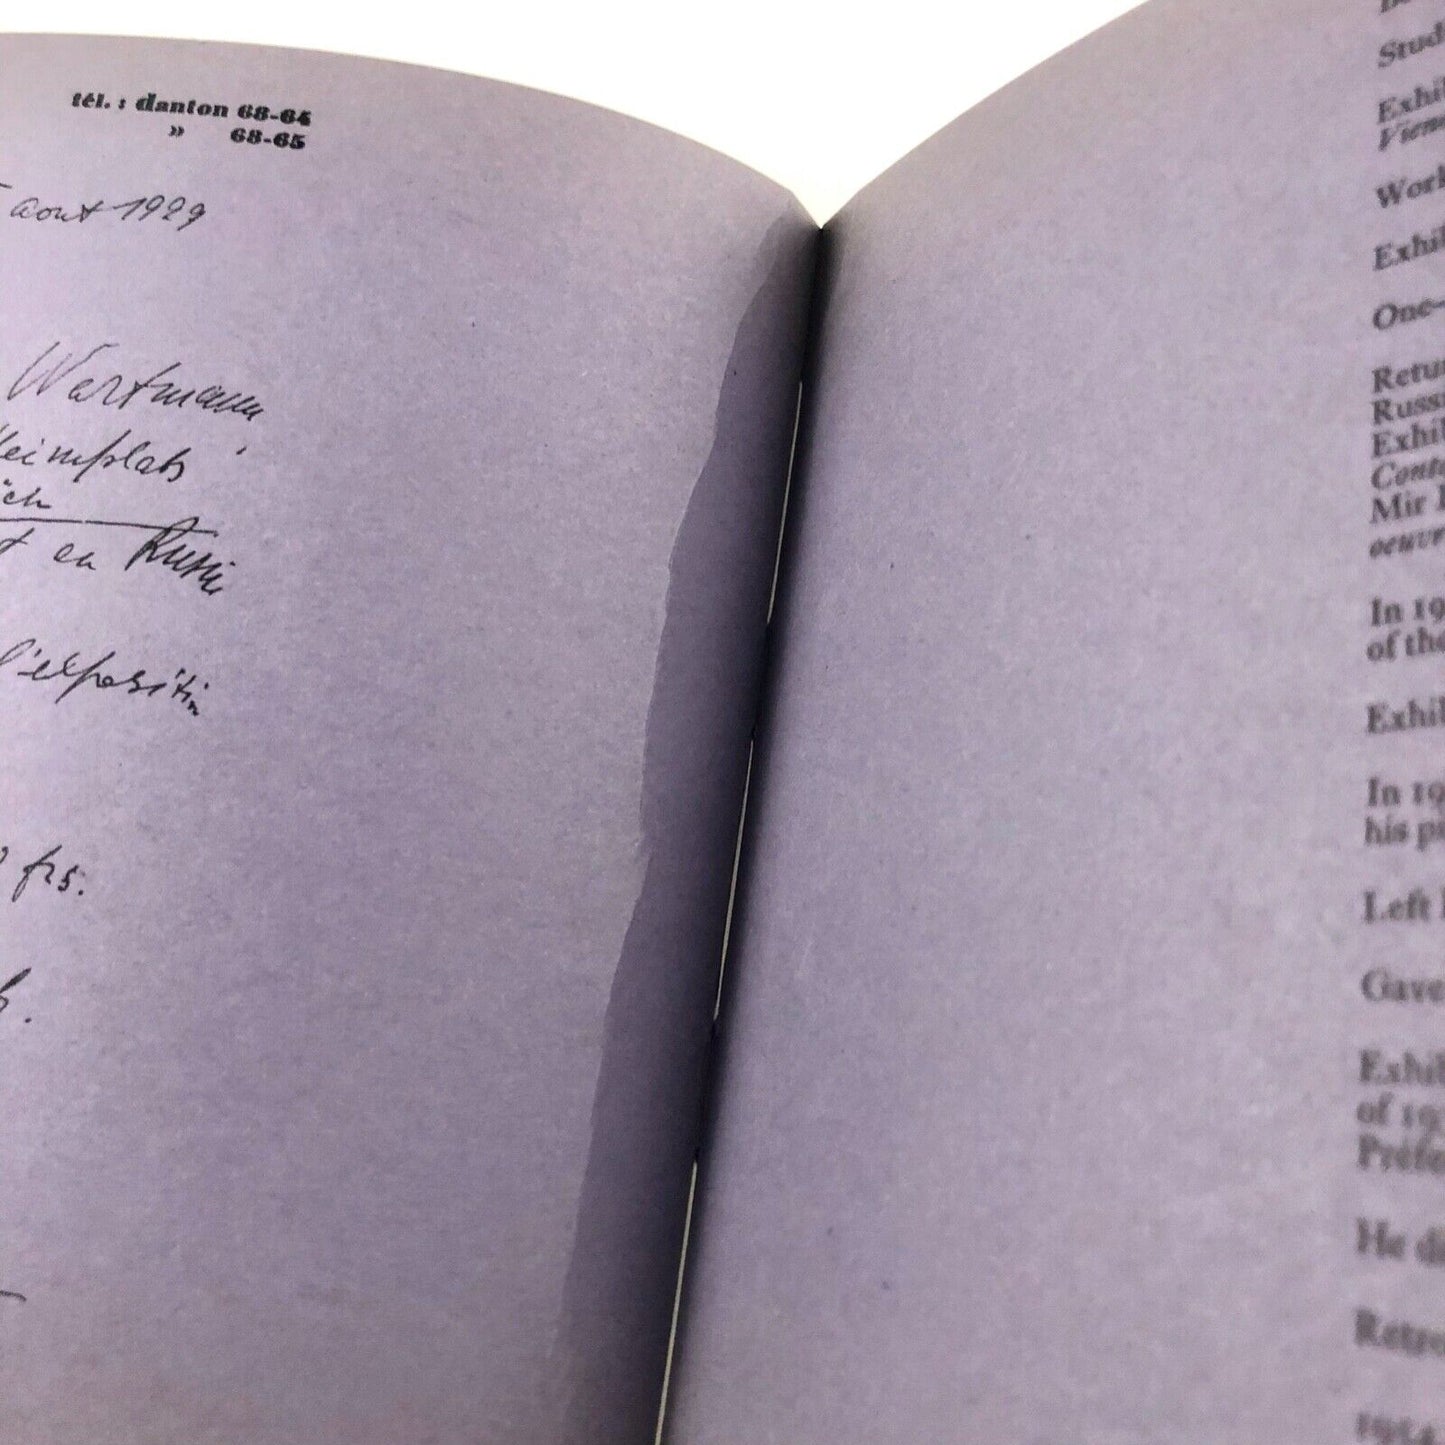 tél. : danton 68-64
» 68-65
aout 1929
Wartmann
Heimplatz
ich
en Russie
l'exposition
frs.
Stud
Exhi
Vien
Work
Exhi
One-
Retur
Russi
Exhi
Conte
Mir
oeuvre
In 19
of the
Exhil
In 19
his pi
Left
Gave
Exhil
of 19
Préfe
He di
Retro
1954